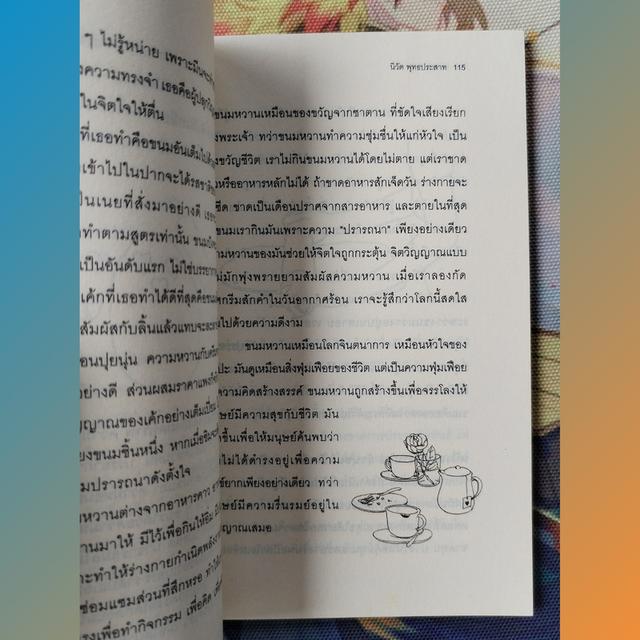 ๆ ไม่รู้หน่าย เพราะมัน
ความทรงจำ เธอคือผู้ปลุก
ในจิตใจให้ตื่น
ที่เธอทำคือขนมอันเต็มไป
เข้าไปในปากจะได้รส
เป็นเนยที่สั่งมาอย่างดี
ทำตามสูตรเท่านั้น
เป็นอันดับแรก ไม่ใช่
เค้กที่เธอทำได้ดีที่สุดคือ
สัมผัสกับลิ้นแล้วแทบจะ
อนปุยนุ่น ความหวานกับ
อย่างดี ส่วนผสมราคาแพง
ญญาณของเค้กอย่างเต็มเปี่ยม
ยงขนมชิ้นหนึ่ง หาก
มปรารถนาดังตั้งใจ
หวานต่างจากอาหารคาว
านมาให้ มีไว้เพื่อกินให้อิ่ม
ะทำให้ร่างกายกำเนิดพลัง
ซ่อมแซมส่วนที่สึกหรอ
รงเพื่อทำกิจกรรม เพื่อคิด
นิวัต พุทธประสาท 115
ขนมหวานเหมือนของขวัญจากซาตาน ที่ขัดใจเสียงเรียก
งพระเจ้า ทว่าขนมหวานทำความชุ่มชื่นให้แก่หัวใจ เป็น
งขวัญชีวิต เราไม่กินขนมหวานได้โดยไม่ตาย แต่เราขาด
หรืออาหารหลักไม่ได้ ถ้าขาดอาหารสักเจ็ดวัน ร่างกายจะ
ซีด ขาดเป็นเดือนปราศจากสารอาหาร และตายในที่สุด
ขนมเรากินมันเพราะความ "ปรารถนา" เพียงอย่างเดียว
วามหวานของมันช่วยให้จิตใจถูกกระตุ้น จิตวิญญาณแบบ
ม้มักพุ่งพรายยามสัมผัสความหวาน เมื่อเราลองกัด
กรีมสักคำในวันอากาศร้อน เราจะรู้สึกว่าโลกนี้สดใส
ไปด้วยความดีงาม
ขนมหวานเหมือนโลกจินตนาการ เหมือนหัวใจของ
ปะ มันดูเหมือนสิ่งฟุ่มเฟือยของชีวิต แต่เป็นความฟุ่มเฟือย
ความคิดสร้างสรรค์ ขนมหวานถูกสร้างขึ้นเพื่อจรรโลงให้
ษย์มีความสุขกับชีวิต มัน
ขึ้นเพื่อให้มนุษย์ค้นพบว่า
ไม่ได้ดำรงอยู่เพื่อความ
ข์ยากเพียงอย่างเดียว ทว่า
ษย์มีความรื่นรมย์อยู่ใน
ญาณเสมอ